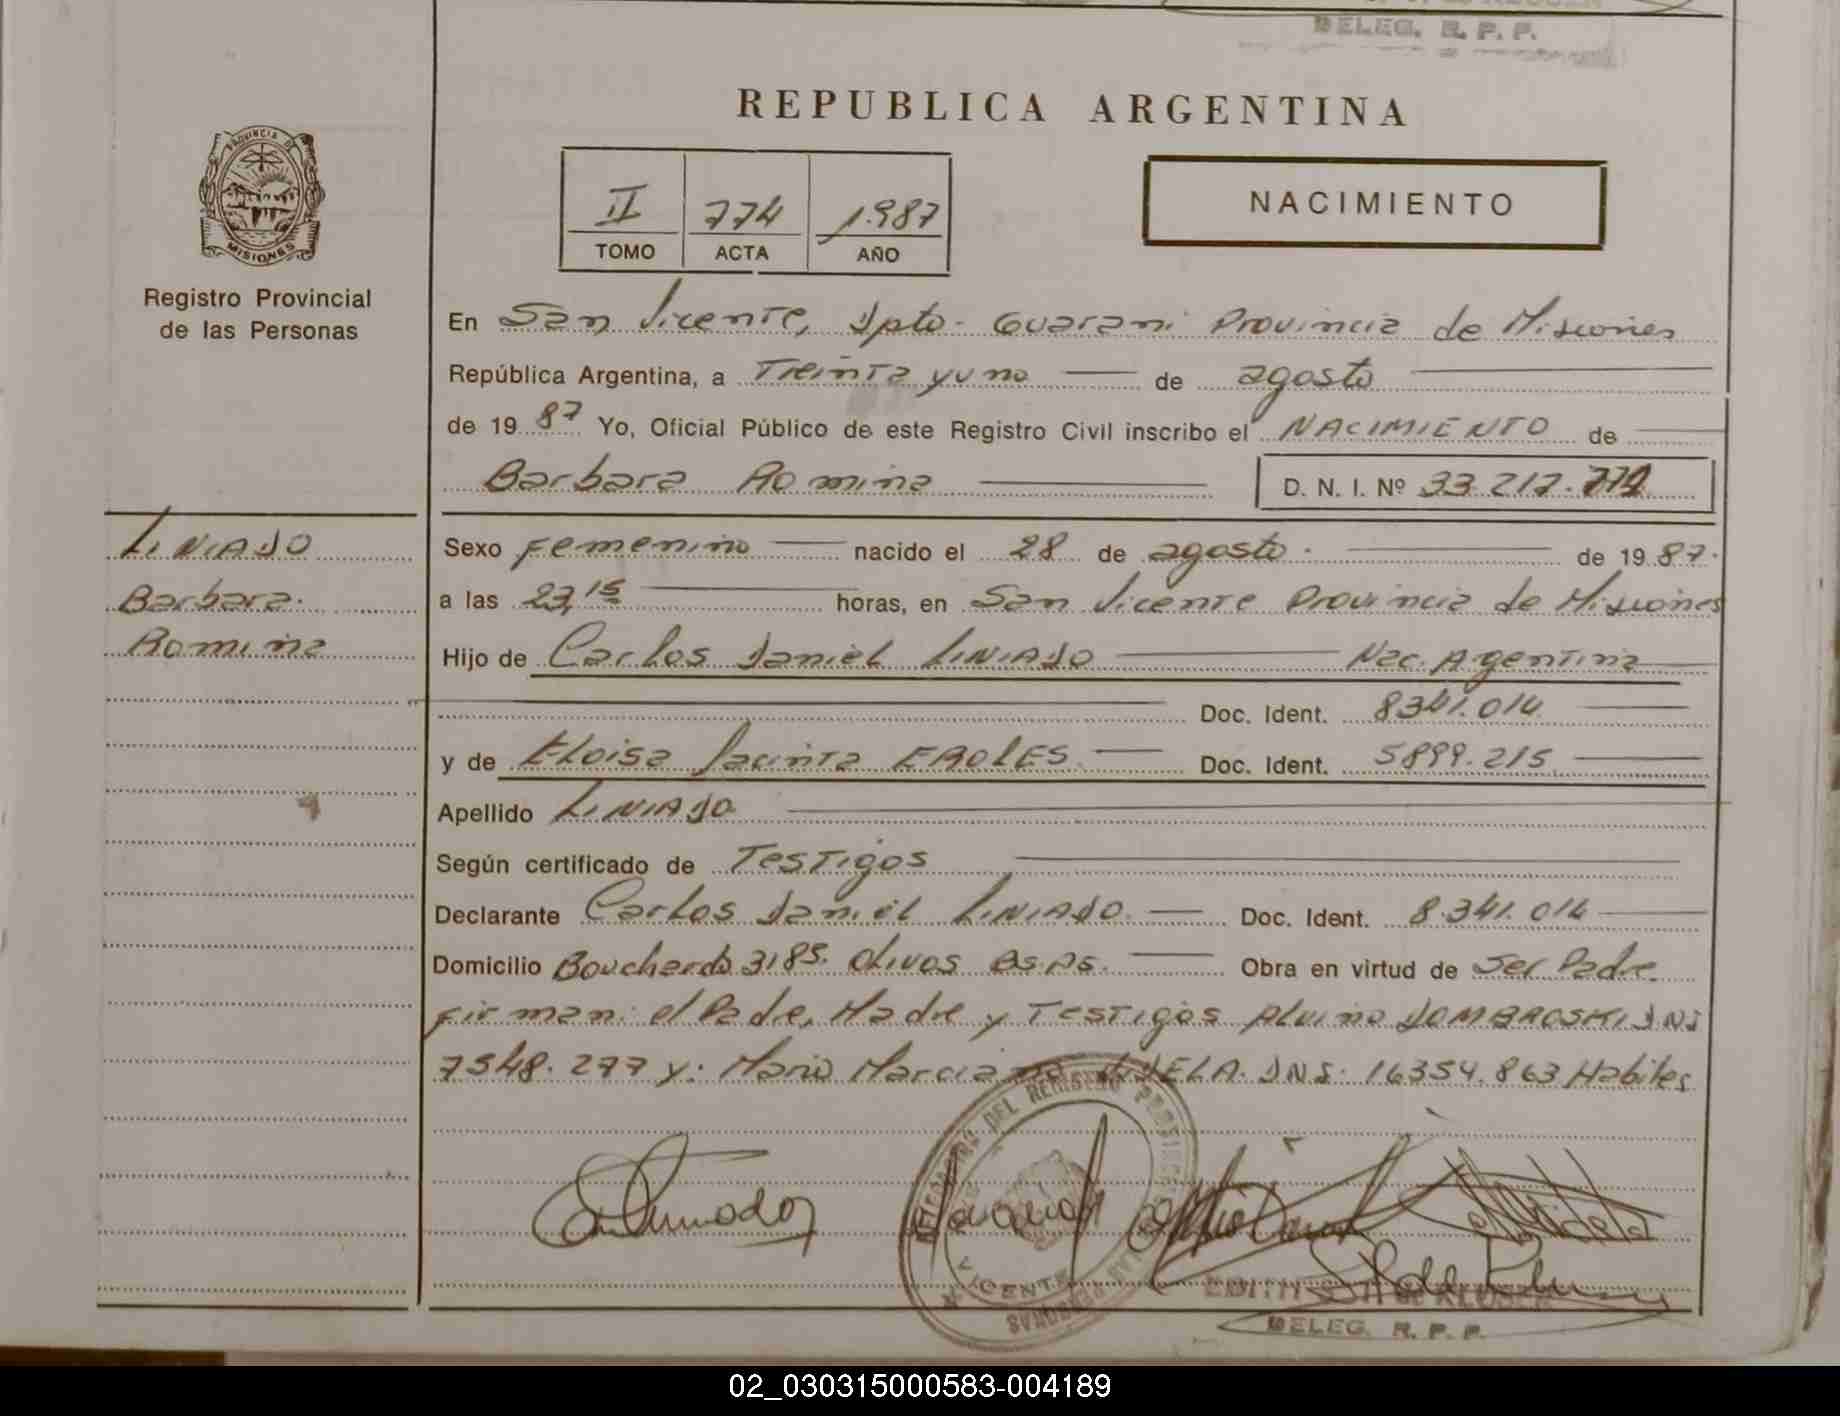 DELEG. R. P. P.
REPUBLICA ARGENTINA
PROVINCIA DE
MISIONES
II 774 1.987
TOMO ACTA AÑO
NACIMIENTO
Registro Provincial
de las Personas
En San Vicente, Dpto. Guarani Provincia de Misiones
República Argentina, a Treinta y uno de agosto
de 19 87 Yo, Oficial Público de este Registro Civil inscribo el NACIMIENTO de
Barbara Romina D. N. I. Nº 33.217.
LINIADO
Barbara
Romina
Sexo Femenino nacido el 28 de agosto de 19 87.
a las 23,15 horas, en San Vicente Provincia de Misiones
Hijo de Carlos Daniel LINIADO Nac. Argentina
Doc. Ident. 8341.014
y de Eloisa Jacinta EROLES Doc. Ident. 5899.215
Apellido LINIADO
Según certificado de Testigos
Declarante Carlos Daniel LINIADO Doc. Ident. 8.341.014
Domicilio Bouchardo 3185. Olivos Bs.As. Obra en virtud de Ser Padre
Firman: el Padre, Madre y Testigos Pluino DOMBROSKI DNI
7548.277 y: Mario Marciano DNI. 16354.863 Habiles
DEL REGISTRO PROVINCIAL
VICENTE
PERSONAS
DELEG. R. P. P.
02_030315000583-004189